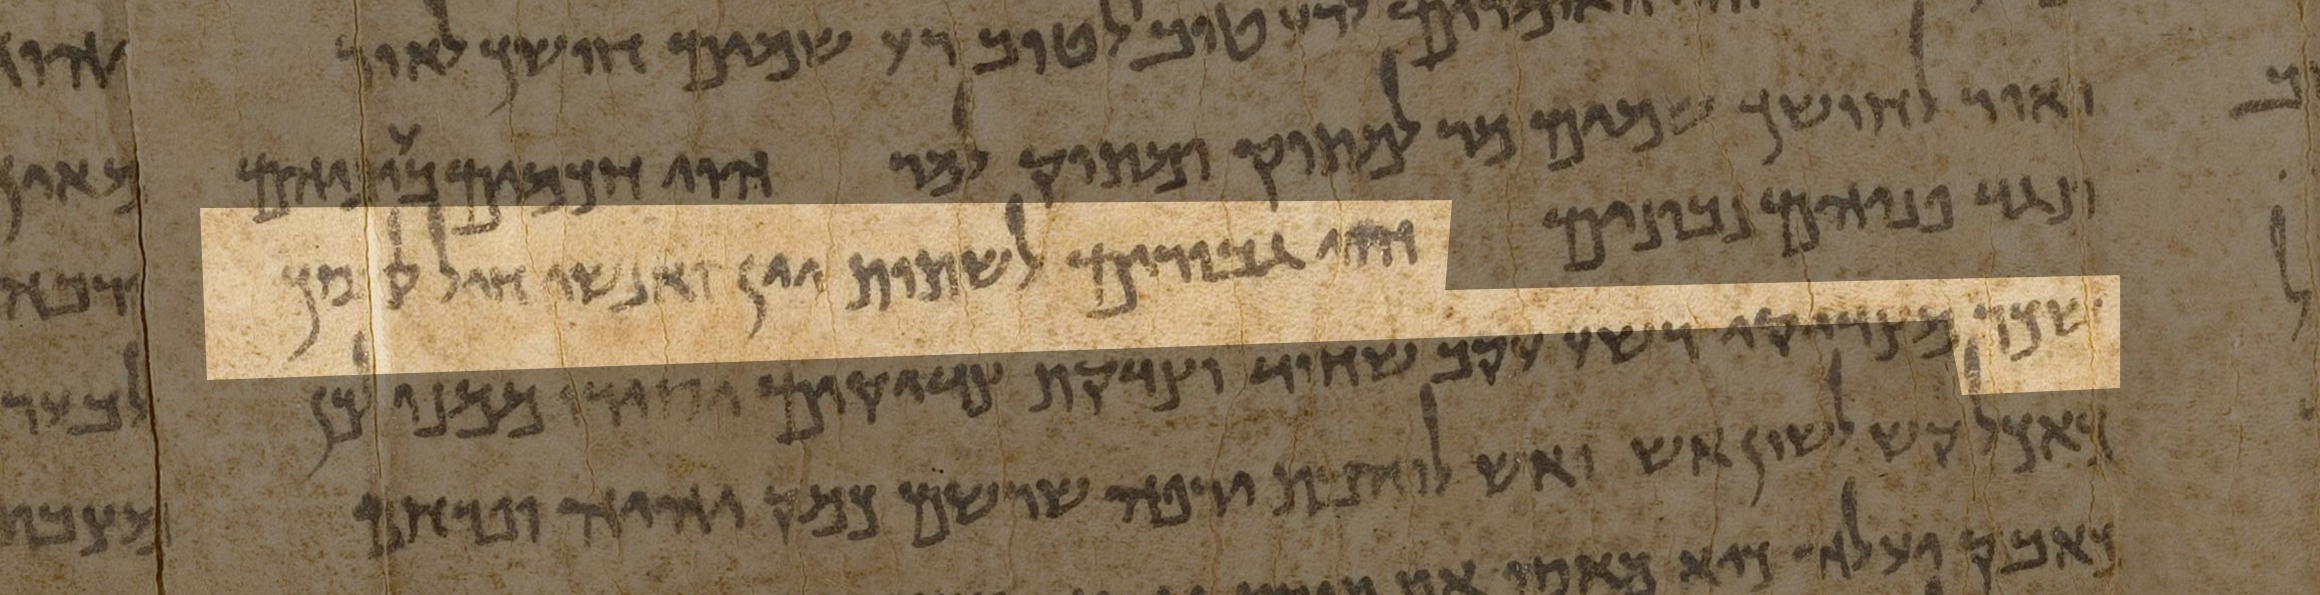 האומרים לרע טוב לטוב רע שמים חושך לאור
ואור לחושך שמים מר למתוק ומתוק למר הוי חכמים בעיניהם
ונגד פניהם נבונים הוי גבורים לשתות יין ואנשי חיל למסך
שכר מצדיקי רשע עקב שחוד וצדקת צדיקים יסירו ממנו לכן
כאכל קש לשון אש ואש לוהבת ירפה שורשם כמק יהיה ופרחם
כאבק יעלה כיא מאסו את